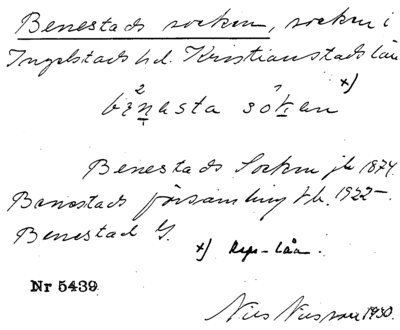 Benestads socken, socken i
Ingelstads hd. Kristianstads län
x)
Benestads Socken jb 1874.
Benestads församling tb. 1922–
Benestad G.
x) Rspr-låa.
Nr 5439
Nils Nilsson 1930.